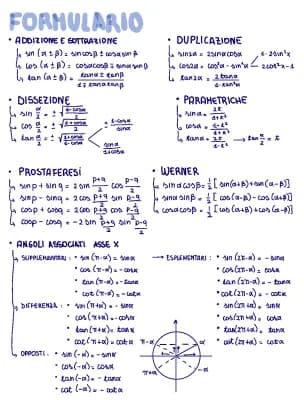 FORMULARIO
• ADDIZIONE E SOTTRAZIONE
sin (α ± β) = sinα cosβ ± cosα sinβ
cos (α ± β) = cosα cosβ ∓ sinα sinβ
tan (α ± β) = tanα ± tanβ / 1 ∓ tanα tanβ
• DUPLICAZIONE
sin2α = 2sinα cosα
cos2α = cos²α - sin²α
1 - 2sin²α
2cos²α - 1
tan2α = 2tanα / 1 - tan²α
• DISSEZIONE
sin α/2 = ± √ 1 - cosα / 2
cos α/2 = ± √ 1 + cosα / 2
tan α/2 = ± √ 1 - cosα / 1 + cosα
1 - cosα / sinα
sinα / 1 + cosα
• PARAMETRICHE
sinα = 2t / 1 + t²
cosα = 1 - t² / 1 + t²
tanα = 2t / 1 - t²
tan α/2 = t
• PROSTAFERESI
sinp + sinq = 2 sin p+q/2 cos p-q/2
sinp - sinq = 2 cos p+q/2 sin p-q/2
cosp + cosq = 2 cos p+q/2 cos p-q/2
cosp - cosq = -2 sin p+q/2 sin p-q/2
• WERNER
sinα cosβ = 1/2 [sin(α+β) + sin(α-β)]
sinα sinβ = 1/2 [cos(α-β) - cos(α+β)]
cosα cosβ = 1/2 [cos(α+β) + cos(α-β)]
• ANGOLI ASSOCIATI ASSE X
SUPPLEMENTARI : • sin (π-α) = sinα
• cos (π-α) = - cosα
• tan (π-α) = - tanα
• cot (π-α) = - cotα
ESPLEMENTARI : • sin (2π-α) = - sinα
• cos (2π-α) = cosα
• tan (2π-α) = - tanα
• cot (2π-α) = - cotα
DIFFERENZA : • sin (π+α) = - sinα
• cos (π+α) = - cosα
• tan (π+α) = tanα
• cot (π+α) = cotα
• sin (2π+α) = sinα
• cos (2π+α) = cosα
• tan (2π+α) = tanα
• cot (2π+α) = cotα
OPPOSTI : • sin (-α) = - sinα
• cos (-α) = cosα
• tan (-α) = - tanα
• cot (-α) = - cotα
π-α
α
π+α
-α